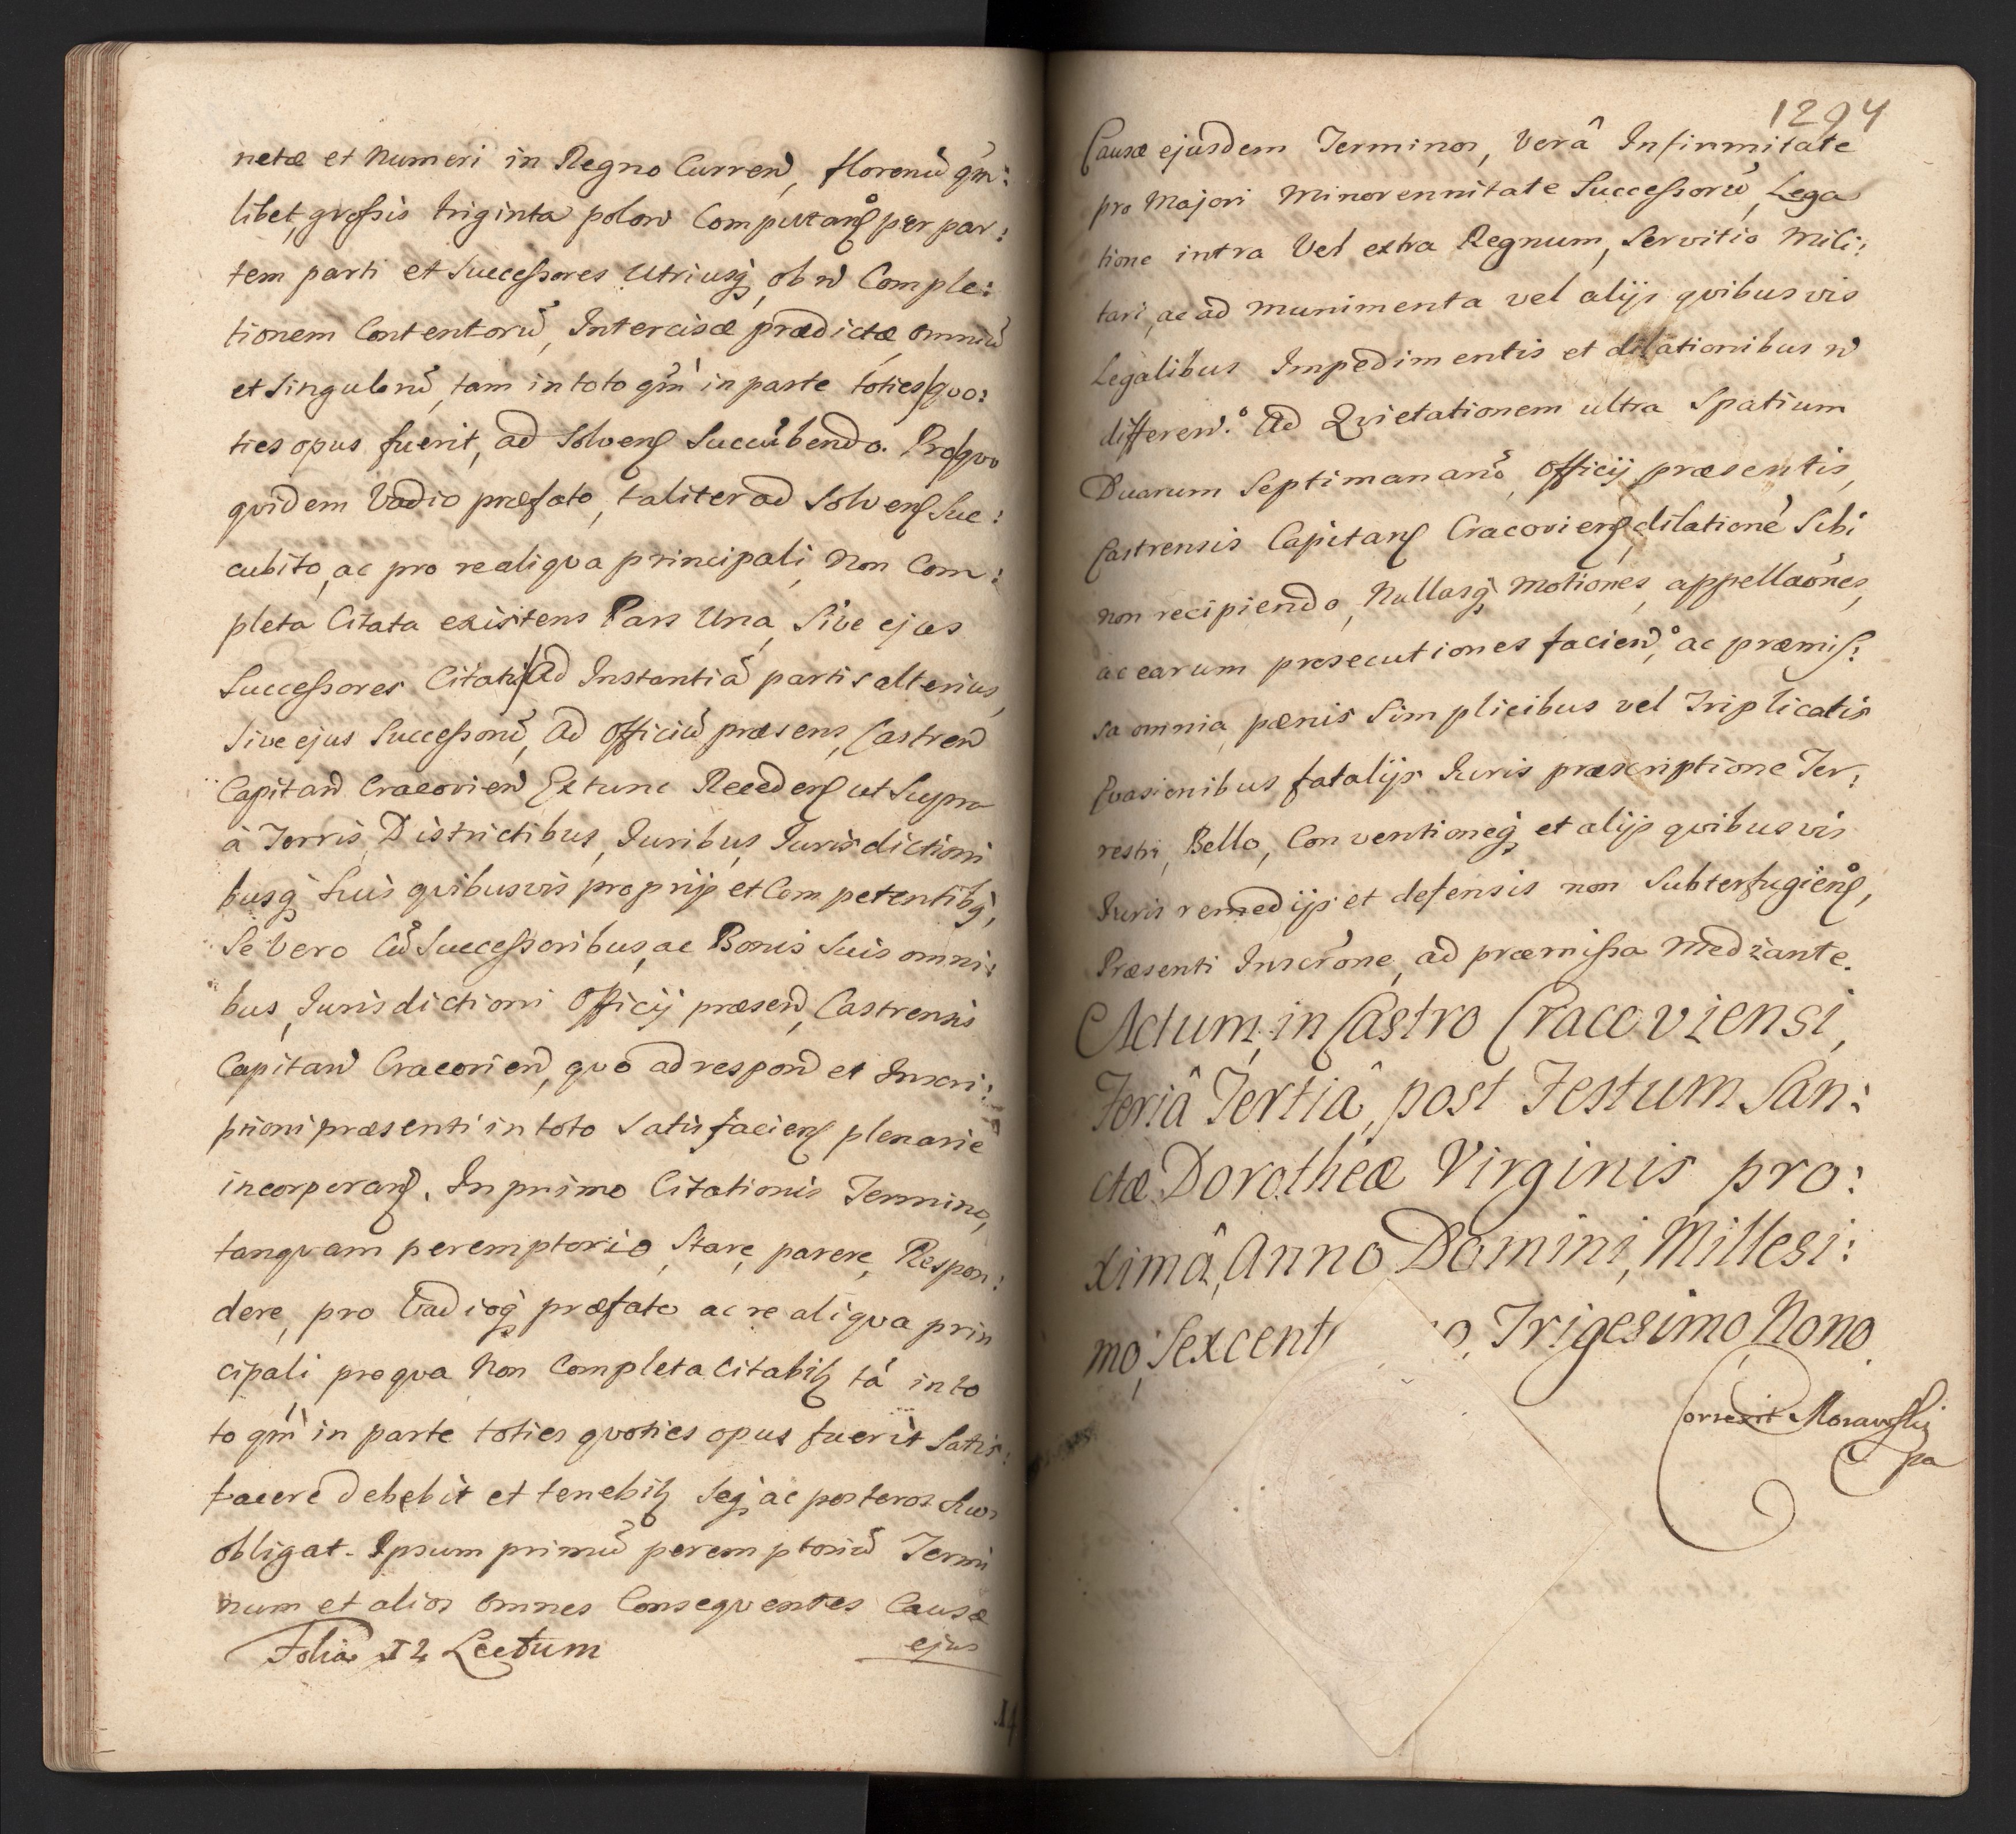 netæ et Numeri in Regno Curren, florenũ qm̃:
libet, grossis triginta polon Computanꝭ per par:
tem parti et Successores Utriusq, ob n Comple:
tionem Contentorũ, Intercisæ prædictæ omniũ
et Singulorũ, tam in toto qm̃ in parte toties quo:
ties opus fuerit, ad Solvenꝭ Succũbendo. Pro quo
quidem Vadio præfato, taliter ad Solvenꝭ Suc:
cubito, ac pro re aliqva principali, Non Com:
pleta Citata existens Pars Una, Sive ejus
Successores Citati, ad Instantiã partis alterius,
Sive ejus Successorũ, ad Officiũ præsens, Castren
Capitan Cracovien Extunc Recedenꝭ ut Supra
à Terris, Districtibus, Iuribus, Iurisdictioni
busq Suis qvibusvis proprijs et Competentibq,
Se Vero Cũ Successoribus, ac Bonis Suis omni:
bus, Iurisdictioni Officij præsen, Castrensis
Capitan Cracovien, quo ad respon et Inscri:
ptioni præsenti in toto Satisfacienꝭ plenarie
incorporanꝭ. In primo Citationis Termino,
tanqvam peremptorio, Stare, parere, Respon:
dere, pro Vadioq præfato ac re aliqva prin
cipali pro qva Non Completa Citabitꝭ tã in to
to qm̃ in parte toties qvoties opus fuerit Satis:
facere debebit et tenebitꝭ Seq ac posteros Suos
obligat. Ipsum primũ peremptoriũ Termi
num et alios omnes Conseqventes Causæ
Folia 12 Lectum ejus
1294
Causæ ejusdem Terminos, Verâ Infirmitate
pro Majori Minorennitate Successorũ, Lega
tione intra Vel extra Regnum, Servitio Mili:
tari, ac ad munimenta vel alijs qvibusvis
Legalibus Impedimentis et dilationibus n
differen.° Ad Qvietationem ultra Spatium
Duarum Septimanarũ, Officij præsentis,
Castrensis Capitanꝭ Cracovienꝭ, dilationẽ Sibi
non recipiendo, Nullasq Motiones, appellaõnes,
ac earum prosecutiones facien,° ac præmis:
sa omnia, pænis Simplicibus vel Triplicatis
Evasionibus fatalijs Iuris præscriptione Ter:
restri, Bello, Conventioneq et alijs qvibusvis
Iuris remedijs et defensis non Subterfugienꝭ,
Præsenti Inscr̃one, ad præmissa Mediante.
Actum, in Castro Cracoviensi,
Feriâ Tertiâ, post Festum San:
ctæ Dorotheæ Virginis pro:
ximâ, Anno Domini, Millesi:
mo, Sexcent o, Trigesimo Nono.
Correxit Moravsky